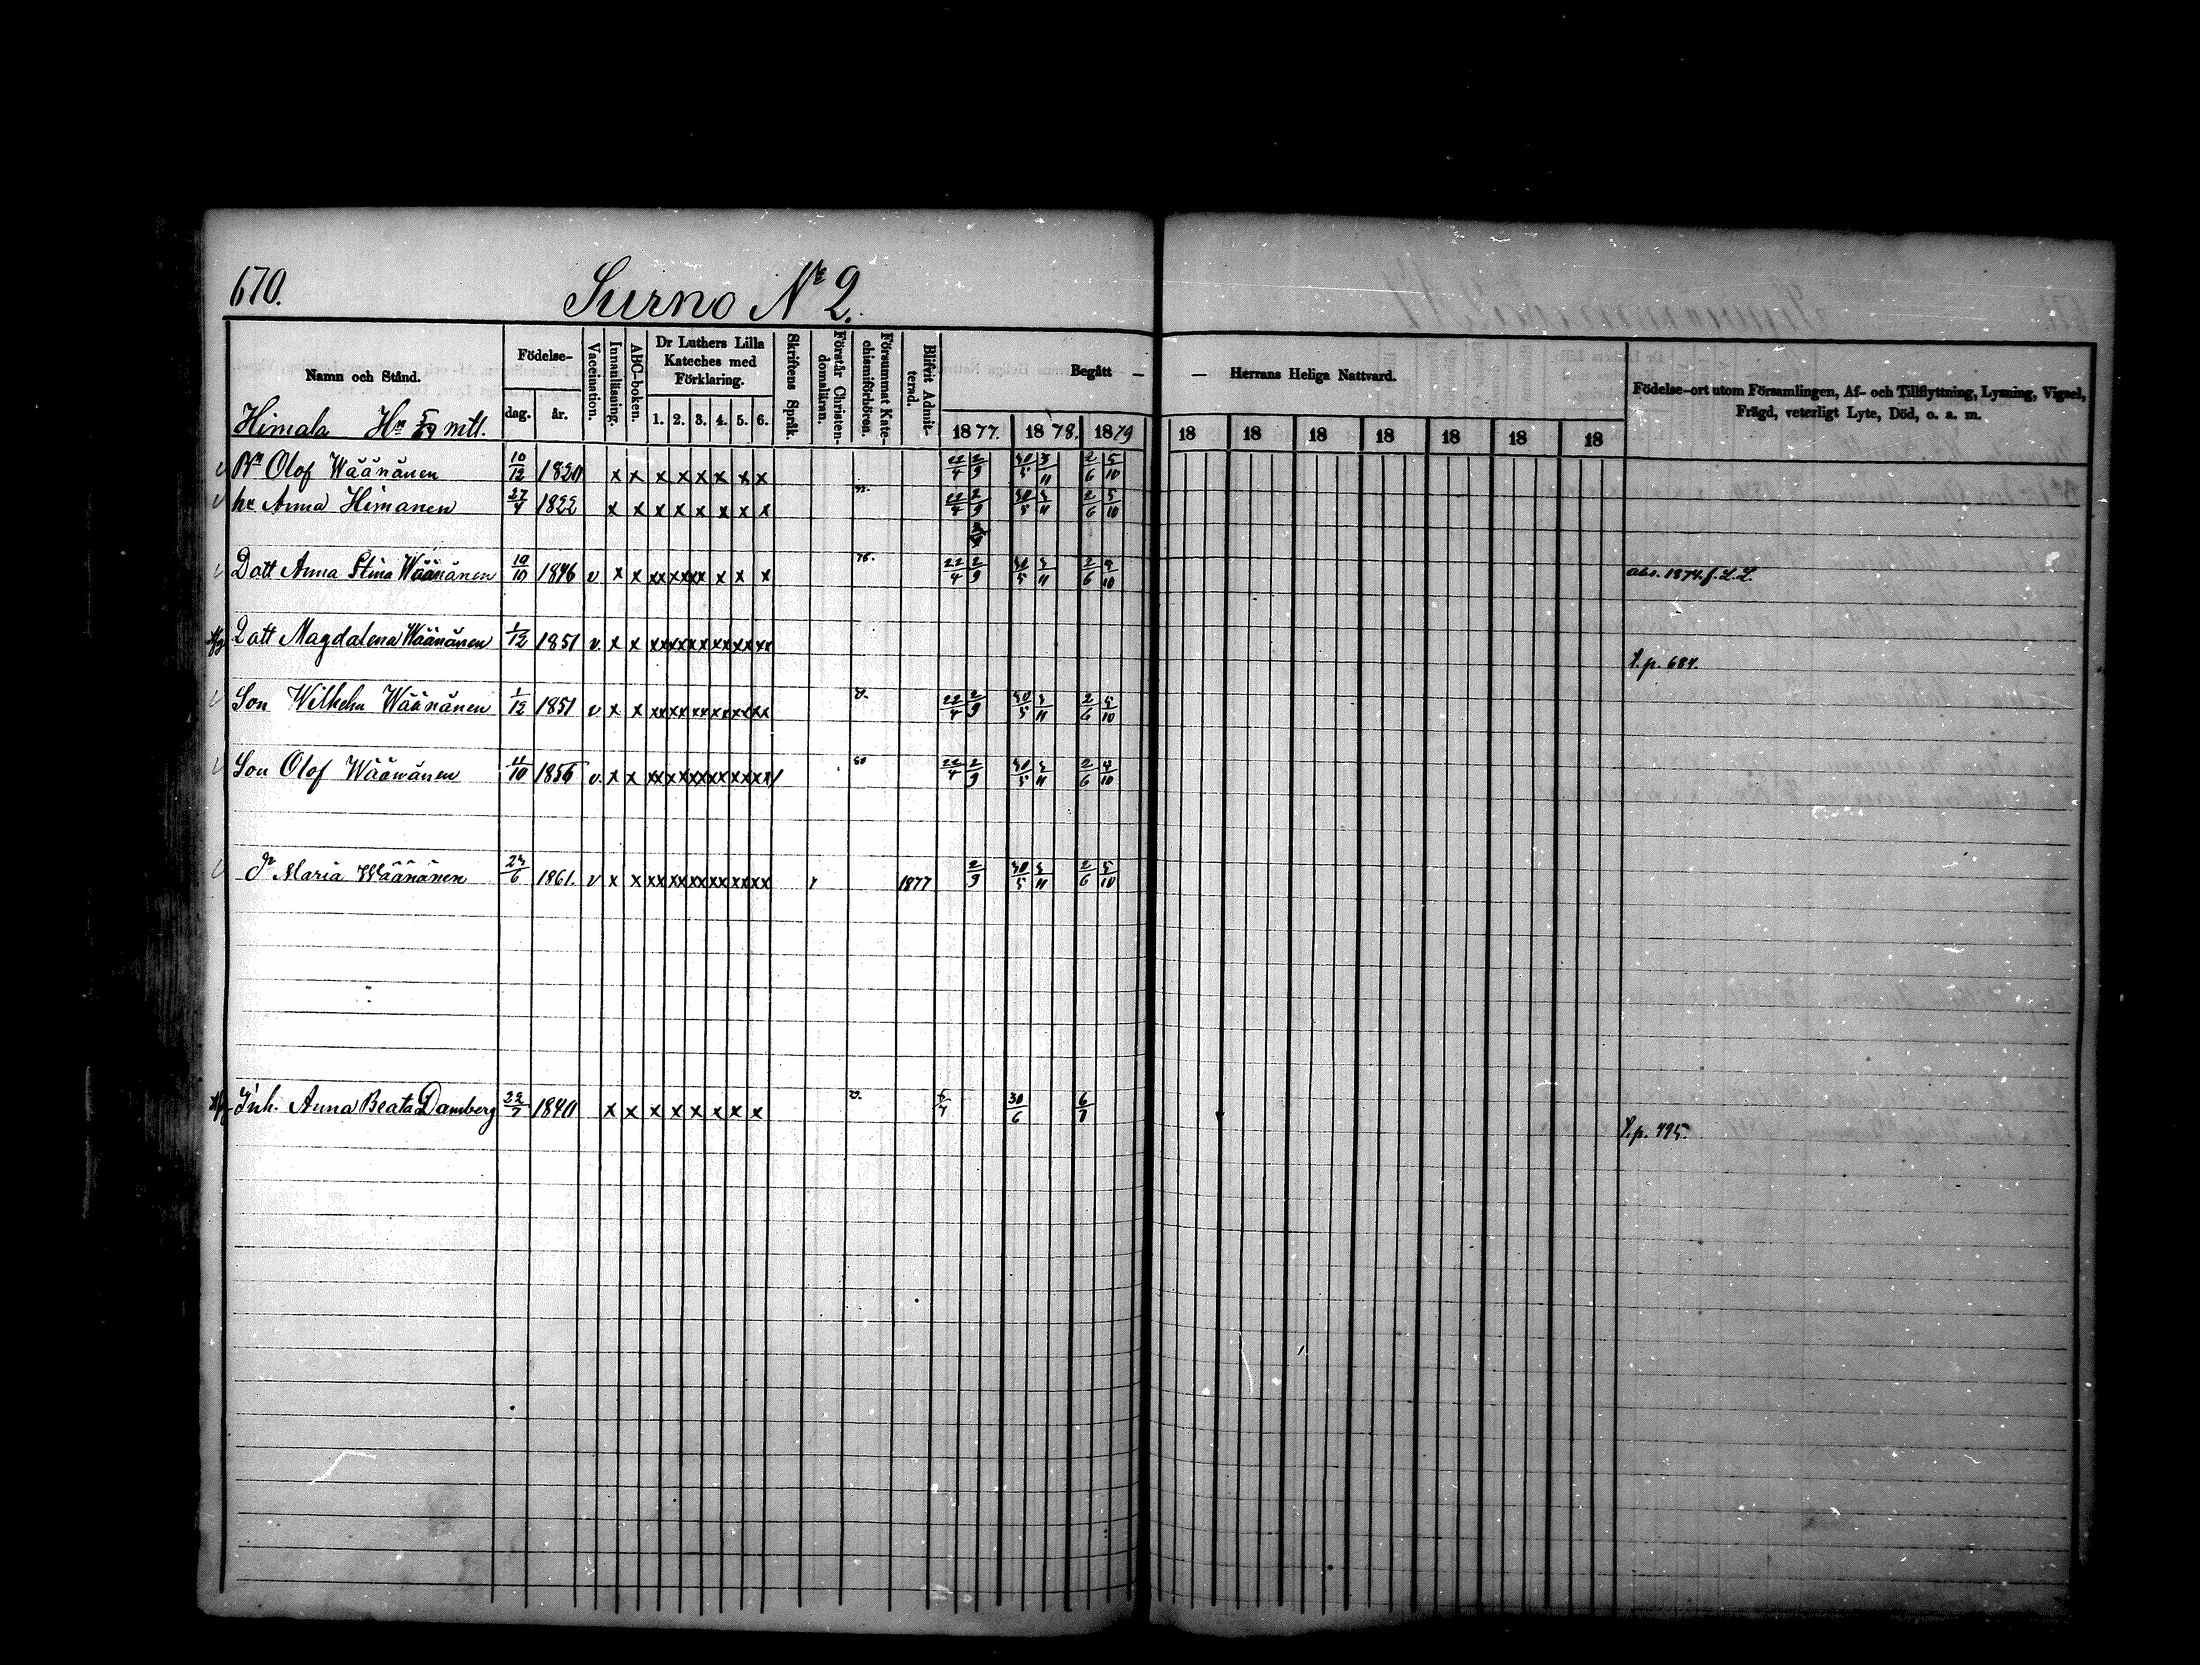 670.
Surno No 2.
Namn och Stånd.
Födelse-
dag.
år.
Vaccination.
Innanläsning.
ABC-boken.
Dr Luthers Lilla
Kateches med
Förklaring.
1. 2. 3. 4. 5. 6.
Skriftens Språk.
Förstår Christen-
domsläran.
Försummat Kate-
chismiförhören.
Blifvit Admit-
terad.
Begått — — Herrans Heliga Nattvard.
1877. 1878. 1879 18 18 18 18 18 18 18
Födelse-ort utom Församlingen, Af- och Tillflyttning, Lysning, Vigsel,
Frägd, veterligt Lyte, Död, o. s. m.
Himala mtl.
Olof Wäänänen 10/12 1820 x x x x x x x x 22/4 2/9 30/5 3/11 2/6 5/10
Anna Himanen 27/4 1822 x x x x x x x x 22/4 2/9 30/5 3/11 2/6 5/10
Dott Anna Stina Wäänänen 10/10 1846 v x x xx xx xx x x x 76. 22/4 2/9 30/5 3/11 2/6 5/10 abs. 1874. f. L. L.
Dott Magdalena Wäänänen 1/12 1851 v. x x xx xx xx xx xx xx T. p. 684.
Son Wilhelm Wäänänen 1/12 1851 v x x xx xx xx xx xx xx 22/4 2/9 30/5 3/11 2/6 5/10
Son Olof Wäänänen 11/10 1856 v. x x xx xx xx xx xx xx 22/4 2/9 30/5 3/11 2/6 5/10
Dr Maria Wäänänen 24/6 1861. v x x xx xx xx xx xx xx 1877 2/9 30/5 3/11 2/6 5/10
Inh. Anna Beata Damberg 22/7 1840 x x x x x x x x 30/6 6/7 T. p. 495.